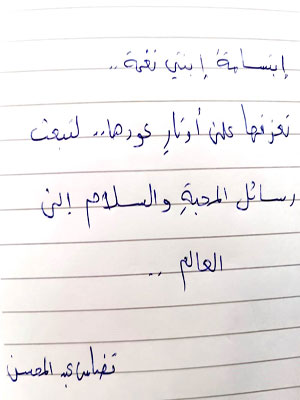 إبتسامة إبنتي نغمة..
تعزفها على أوتارِ عودها.. لتبعث
رسائل المحبةِ والسلام إلى
العالم ..
عبد المحسن